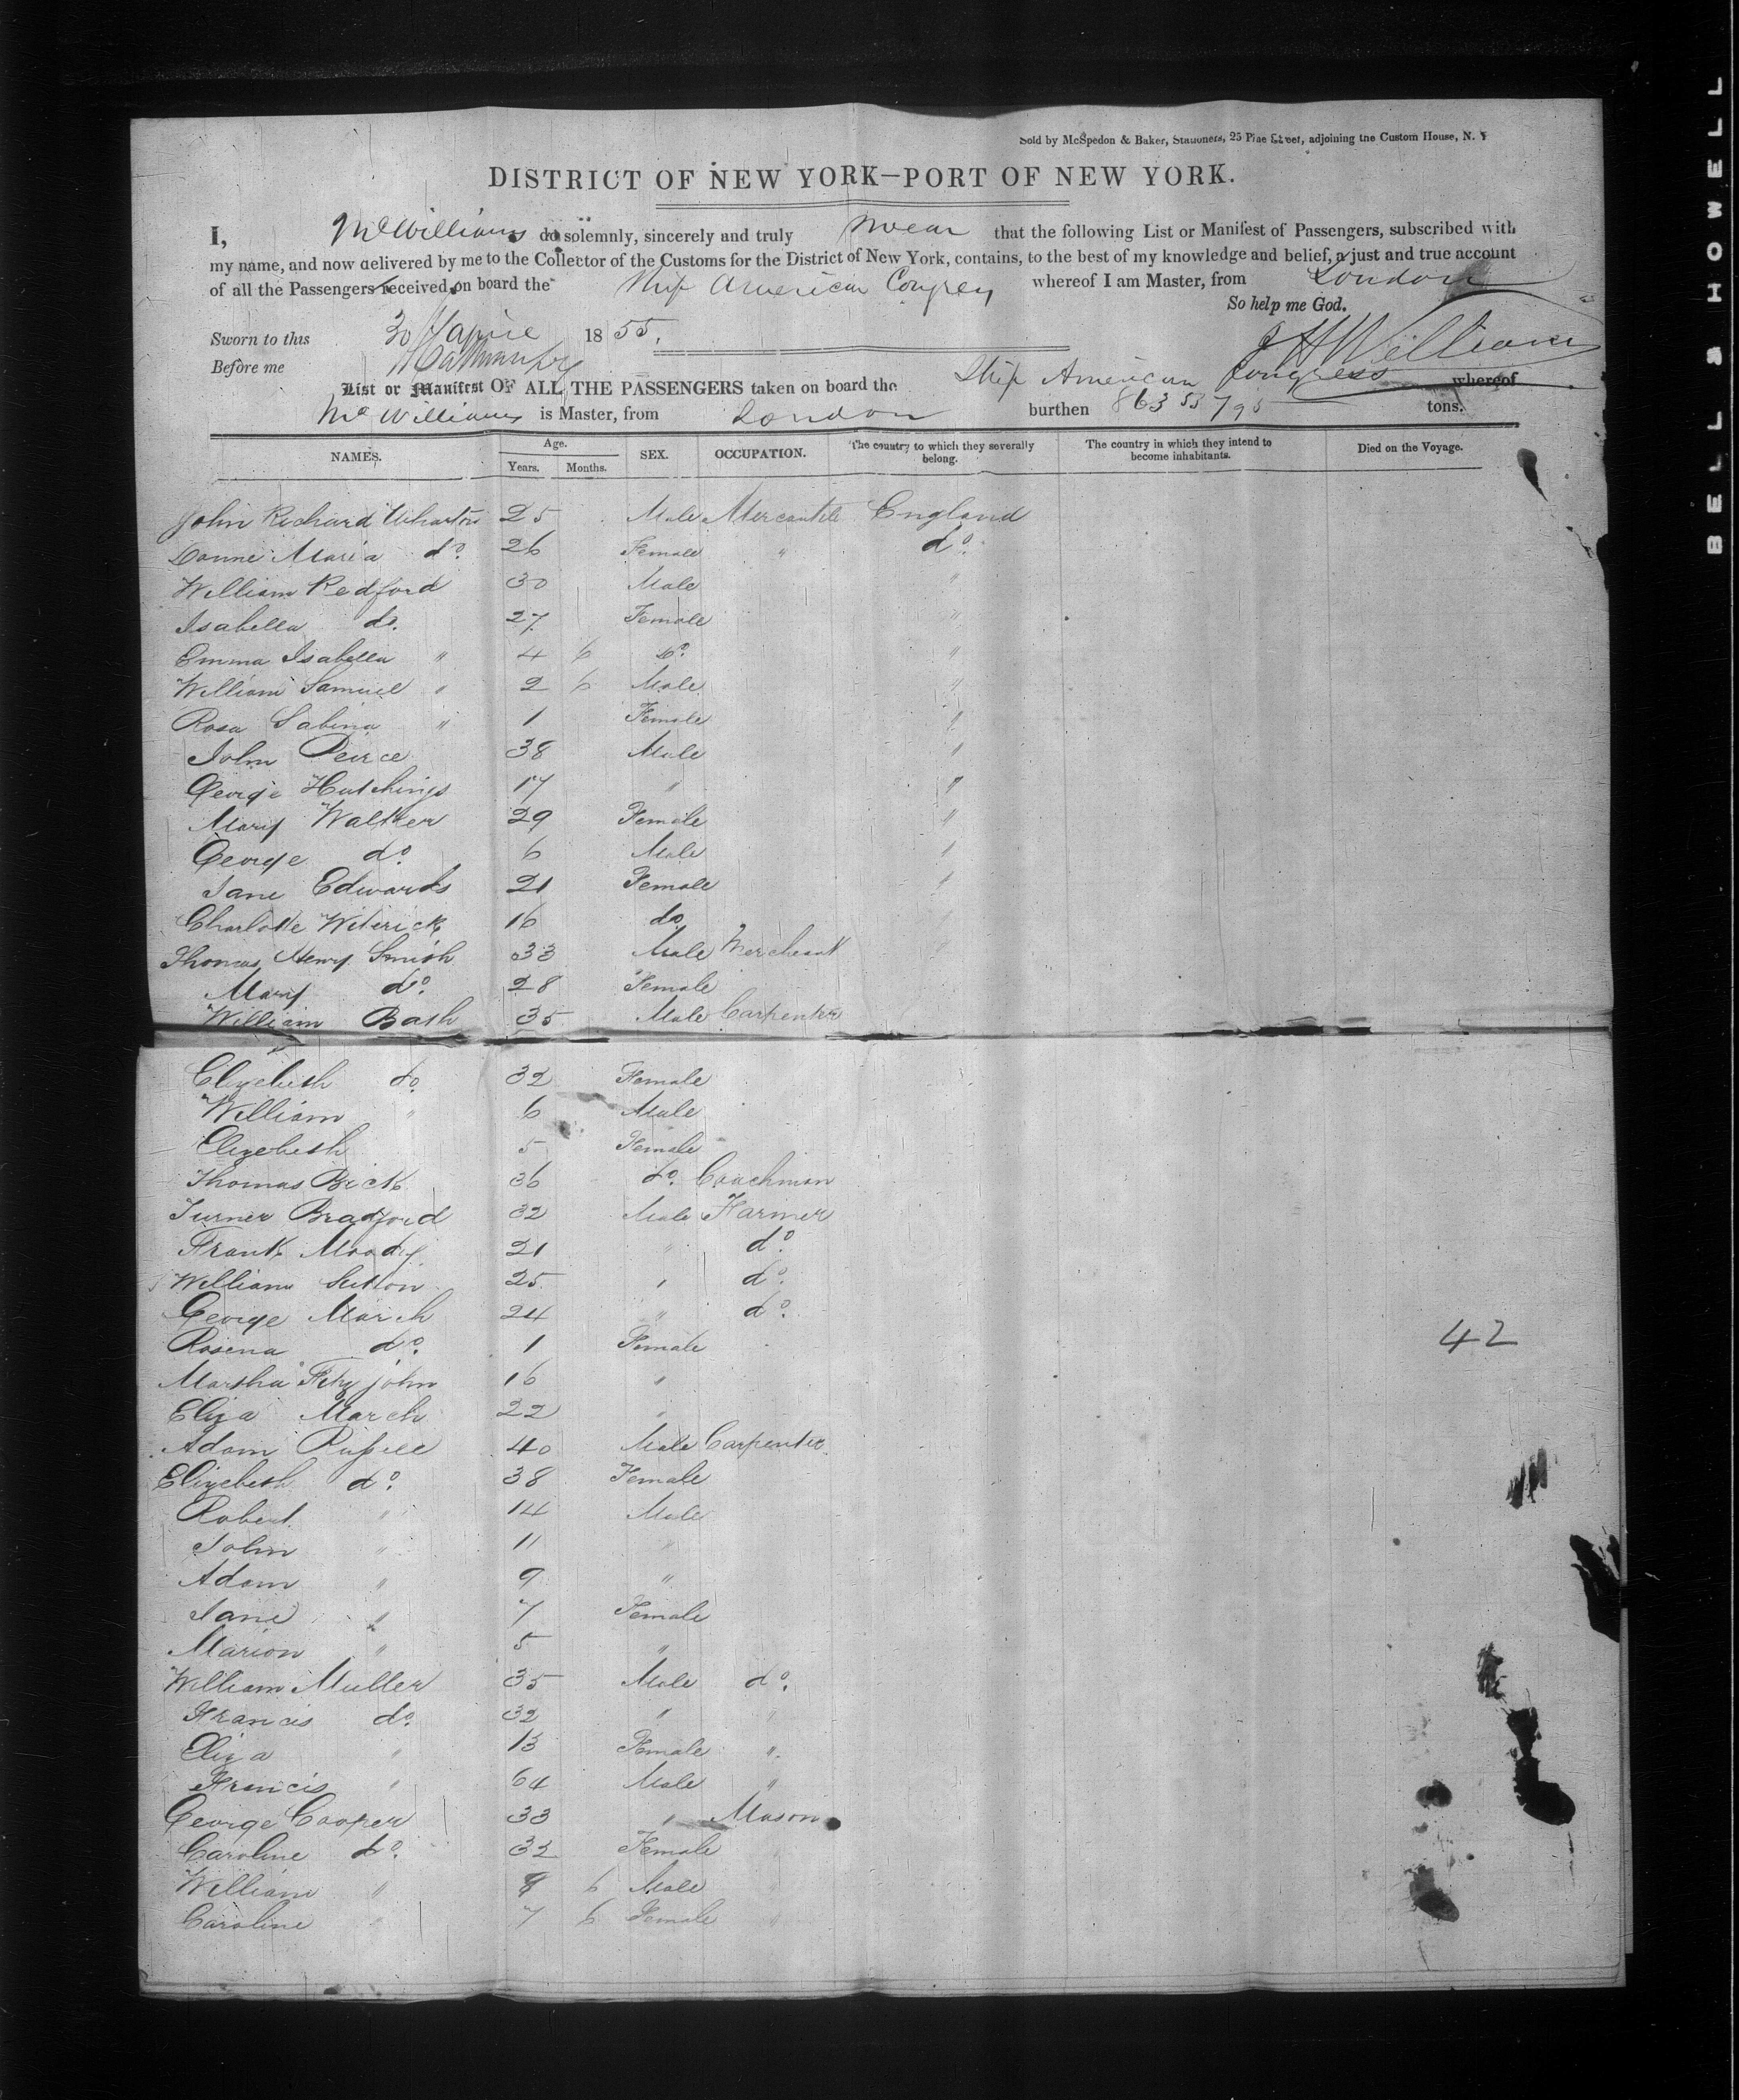 Sold by McSpedon & Baker, Stationers, 25 Pine Street, adjoining the Custom House, N. Y
DISTRICT OF NEW YORK—PORT OF NEW YORK.
I, McWilliams do solemnly, sincerely and truly swear that the following List or Manifest of Passengers, subscribed with
my name, and now delivered by me to the Collector of the Customs for the District of New York, contains, to the best of my knowledge and belief, a just and true account
of all the Passengers received on board the Ship American Congress whereof I am Master, from London
So help me God.
Sworn to this 30 April 1855.
Before me
List or Manifest OF ALL THE PASSENGERS taken on board the Ship American Congress whereof
McWilliams is Master, from London burthen 863 53/95 tons.
NAMES. Age. Years. Months. SEX. OCCUPATION. The country to which they severally belong. The country in which they intend to become inhabitants. Died on the Voyage.
John Richard Wharton 25 Male Mercantile England
Maria do. 26 Female " do.
William Redford 30 Male "
Isabella do. 27 Female "
Emma Isabella " 4 6 do. "
William Samuel " 2 6 Male "
Rosa Sabina " 1 Female "
John Peirce 38 Male "
George Hutchings 17 " "
Mary Walker 29 Female "
George do. 6 Male "
Jane Edwards 21 Female "
Charlotte Witerick 16 do. "
Thomas Henry Smith 33 Male Merchant "
Mary do. 28 Female
William Bash 35 Male Carpenter
Elizebeth do. 32 Female
William " 6 Male
Elizebeth 5 Female
Thomas Beck 36 do. Coachman
Turner Bradford 32 Male Farmer
Frank Moody 21 " do.
William Sutton 25 " do.
George March 24 " do.
Rosena do. 1 Female
Marsha Fitzjohn 16 "
Eliza March 22 "
Adam Russell 40 Male Carpenter
Elizebeth do. 38 Female
Robert " 14 Male
John " 11 "
Adam " 9 "
Jane " 7 Female
Marion " 5 "
William Muller 35 Male do.
Francis do. 32 " "
Eliza " 13 Female "
Francis " 64 Male "
George Cooper 33 " Mason
Caroline do. 32 Female
William " 9 6 Male
Caroline " 7 6 Female "
42
BELL & HOWELL